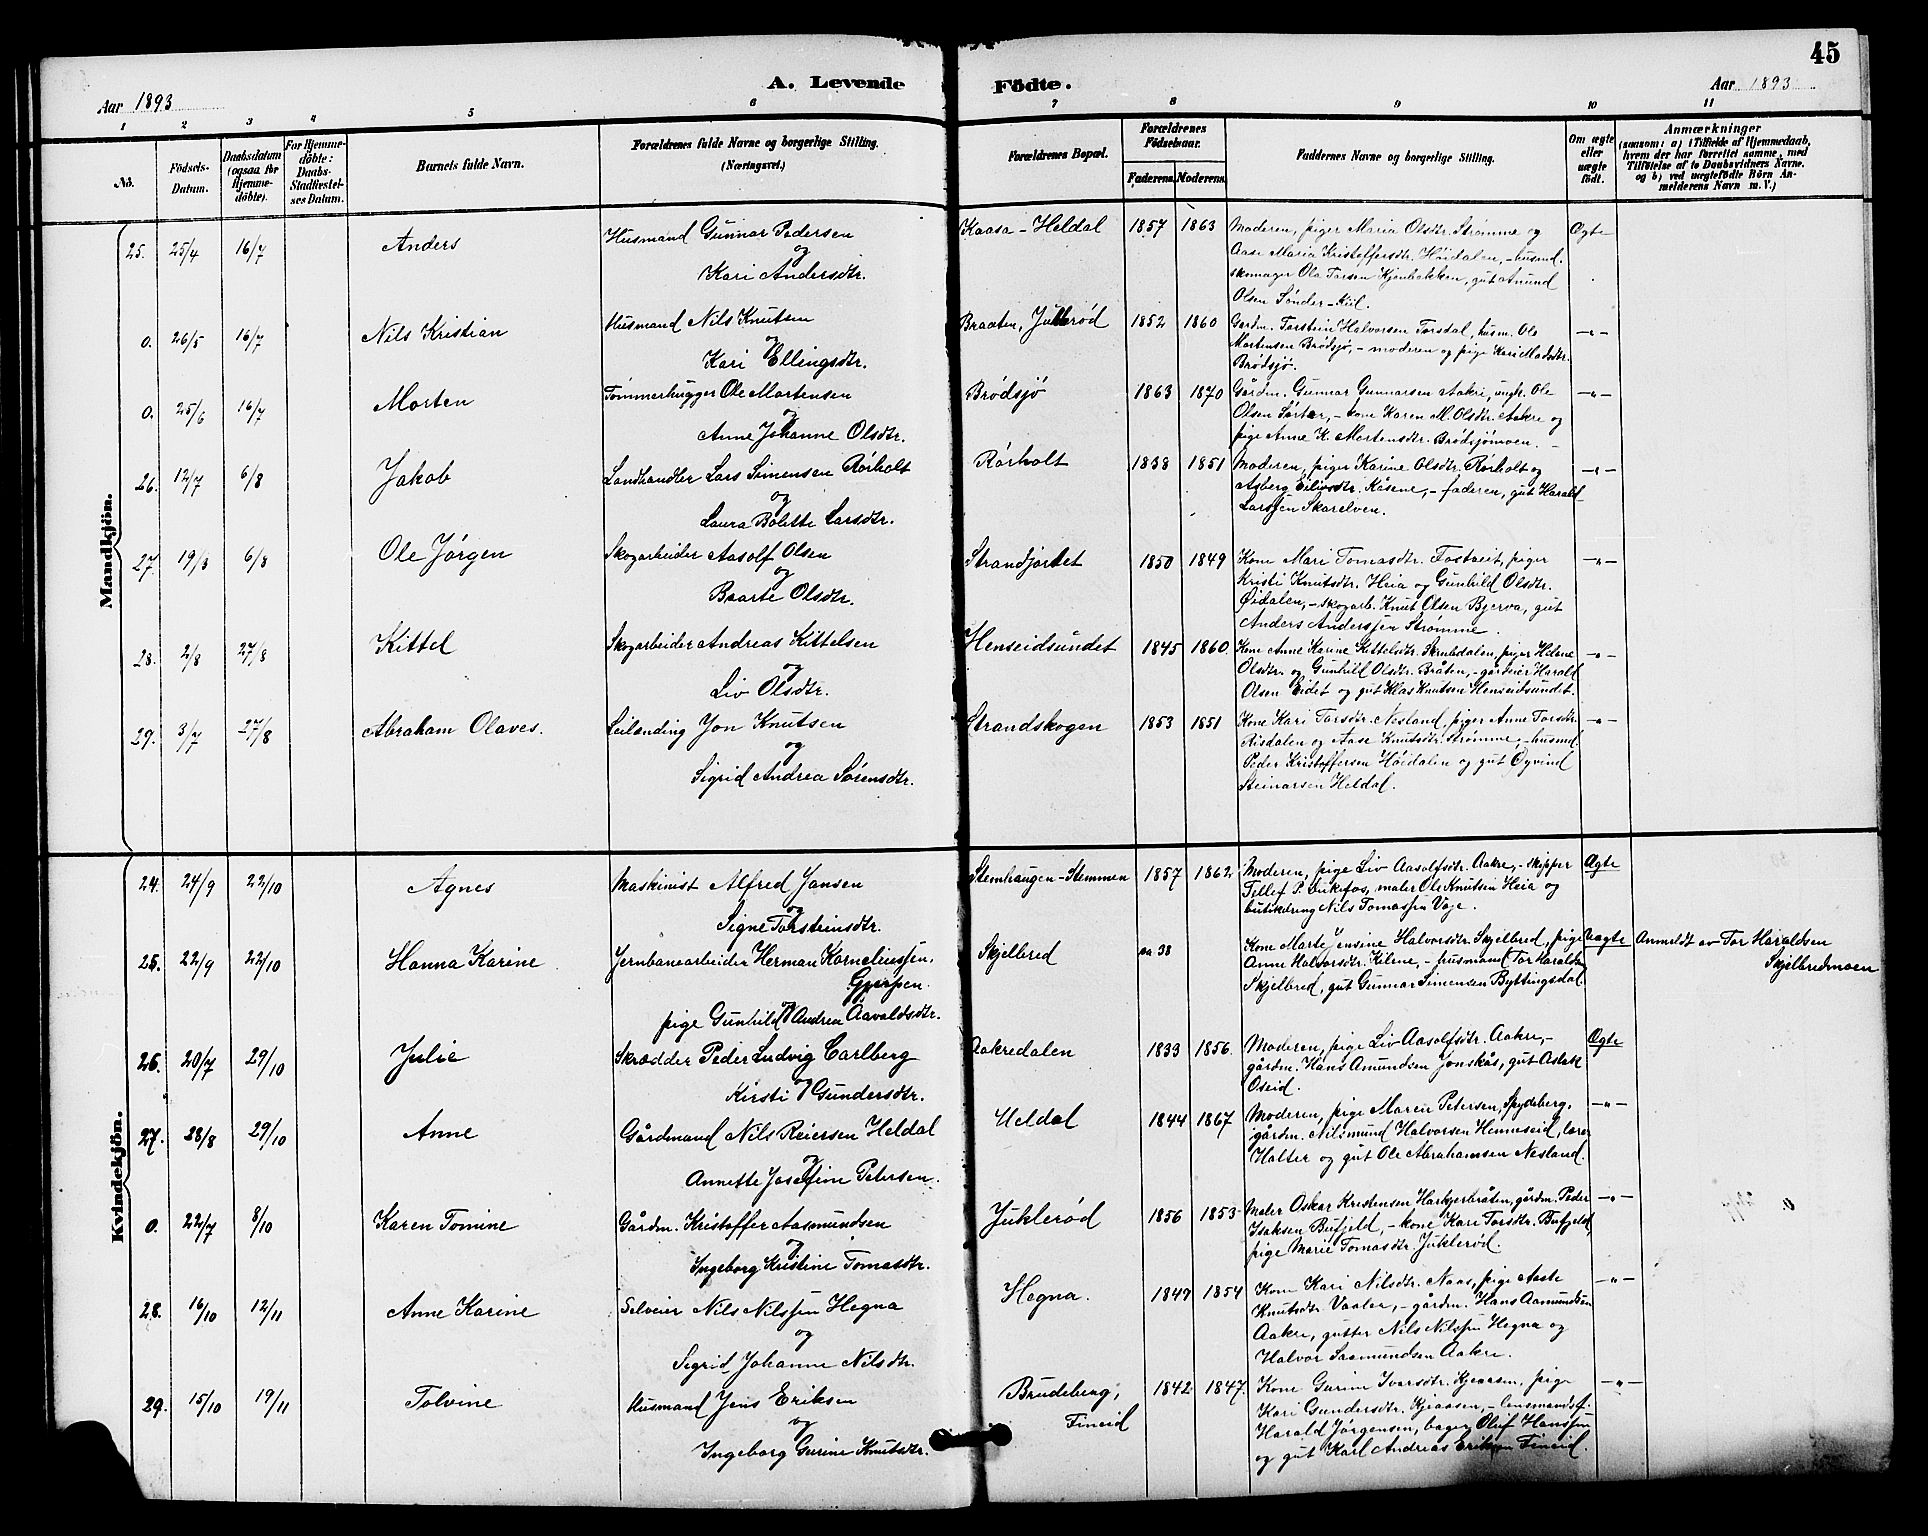 45
A. Levende Födte.
Aar 1893
Aar 1893
1 2 3 4 5 6 7 8 9 10 11
No.
Födsels-Datum.
Daabsdatum (ogsaa for Hjemme-döbte).
For Hjemme-döbte: Daabs-Stadfæstel-ses Datum.
Barnets fulde Navn.
Forældrenes fulde Navne og borgerlige Stilling. (Næringsvei.)
Forældrenes Bopæl.
Forældrenes Födselsaar.
Faderens. Moderens.
Faddernes Navne og borgerlige Stilling.
Om ægte eller uægte födt.
Anmærkninger
(saasom: a) i Tilfælde af Hjemmedaab, hvem der har forrettet samme, med Tilföielse af to Daabsvidners Navne. og b) ved uægtefödte Börn An-melderens Navn m. V.)
Mandkjön.
25. 25/4 16/7 Anders
Husmand Gunnar Pedersen
og
Kari Andersdtr.
Kaasa-Heldal 1857 1863
Moderen, piger Maria Olsdtr. Strømme og
Aase Maria Kristoffersdtr. Høidalen, - husmd.
skomager Ola Torsen Kjenbekken, gut Anund
Olsen Sønder-Kiil.
Ægte
0. 26/5 16/7 Nils Kristian
Husmand Nils Knutsen
og
Kari Ellingsdtr.
Braaten, Juklerød 1852 1860
Gardm. Torstein Halvorsen Torsdal, husm. Ole
Mortensen Brødsjø, - moderen og pige Kari Madsdtr.
Brødsjø.
-"-
0. 25/6 16/7 Morten
Tømmerhugger Ole Mortensen
og
Anne Johanne Olsdtr.
Brødsjø 1863 1870
Gårdm. Gunnar Gunnarsen Aakre, ungk. Ole
Olsen Sørtær, - kone Karen M. Olsdtr. Aakre og
pige Anne K. Mortensdtr. Brødsjømoen.
-"-
26. 12/7 6/8 Jakob
Landhandler Lars Simensen Rørholt
og
Laura Bolette Larsdtr.
Rørholt 1838 1851
Moderen, piger Karine Olsdtr. Rørholt og
Asberg Eilivsdtr. Kåsene, - faderen, gut Harald
Larssen Skarelven.
-"-
27. 19/3 6/8 Ole Jørgen
Skogarbeider Aasolf Olsen
og
Baarte Olsdtr.
Strandjordet 1850 1849
Kone Mari Tomasdtr. Fostveit, piger
Kristi Knutsdtr. Heia og Gunhild Olsdtr.
Øidalen, - skogarb. Knut Olsen Bjerva, gut
Anders Anderssen Strømme.
-"-
28. 2/8 27/8 Kittel
Skogarbeider Andreas Kittelsen
og
Liv Olsdtr.
Henseidsundet 1845 1860.
Kone Anne Karine Kittelsdtr. Skrubdalen, piger Helene
Olsdtr. og Gunhild Olsdtr. Bråten, - gårdeier Harald
Olsen Eidet og gut Klas Knutsen Henseidsundet.
-"-
29. 3/7 27/8 Abraham Olaves.
Leilænding Jon Knutsen
og
Sigrid Andrea Sørensdtr.
Strandskogen 1853 1851
Kone Kari Torsdtr. Nesland, piger Anne Torsdtr.
Risdalen og Aase Knutsdtr. Strømme, - husmd.
Peder Kristoffersen Høidalen og gut Øyvind
Steinarsen Heldal.
-"-
Kvindekjön.
24. 24/9 22/10 Agnes
Maskinist Alfred Jansen
og
Signe Torsteinsdtr.
Stemhaugen-Stemmen 1857 1862
Moderen, pige Liv Aasolfsdtr. Aakre, - skipper
Tellef P. Aukefos, maler Ole Knutsen Heia og
butikdreng Nils Tomassen Vaje.
Ægte
25. 22/9 22/10 Hanna Karine
Jernbanearbeider Herman Korneliussen,
Gjerpen.
og
pige Gunhild Andrea Aavaldsdtr.
Skjelbred 38
Kone Marte Jensine Halvorsdtr. Skjelbred, pige
Anne Halvorsdtr. Kilene, - husmand Tor Haraldsen
Skjelbred, gut Gunnar Simensen Byttingsdal.
Uægte
Anmeldt av Tor Haraldsen
Skjelbredmoen
26. 20/7 29/10 Julie
Skrædder Peder Ludvig Carlberg
og
Kirsti Gundersdtr.
Aakredalen 1833 1856.
Moderen, pige Liv Aasolfsdtr. Aakre, -
gårdm. Hans Amundsen Jonskås, gut Aslak
Oseid.
Ægte
27. 28/8 29/10 Anne
Gårdmand Nils Reiersen Heldal
og
Annette Josefine Petersen.
Heldal 1844 1867
Moderen, pige Maren Petersen, Spydeberg,
gårdm. Nilsmund Halvorsen Henneseid, lærer
Holter og gut Ole Abrahamsen Nesland.
-"-
0. 22/7 8/10 Karen Tomine
Gårdm. Kristoffer Aasmundsen
og
Ingeborg Kristine Tomasdtr.
Juklerød 1856 1853
Maler Oskar Kristensen Harkjerbråten, gårdm. Peder
Isaksen Bufjeld, - kone Kari Torsdtr. Bufjeld,
pige Marie Tomasdtr. Juklerød.
-"-
28. 16/10 12/11 Anne Karine
Selveier Nils Nilssen Hegna
og
Sigrid Johanne Nilsdtr.
Hegna. 1849 1854
Kone Kari Nilsdtr. Naas, pige Aaste
Knutsdtr. Vaaler, - gårdm. Hans Aamundsen
Aakre, gutter Nils Nilssen Hegna og
Halvor Saamundsen Aakre.
-"-
29. 15/10 19/11 Tolvine
Husmand Jens Eriksen
og
Ingeborg Gurine Knutsdtr.
Brudeberg,
Fineid
1842 1847.
Kone Gurine Ivarsdtr. Kjeaasen, pige
Kari Gundersdtr. Kjeaasen, - lensmandsf.
Harald Jørgensen, bager Oluf Hanssen
og gut Karl Andreas Eriksen Fineid.
-"-